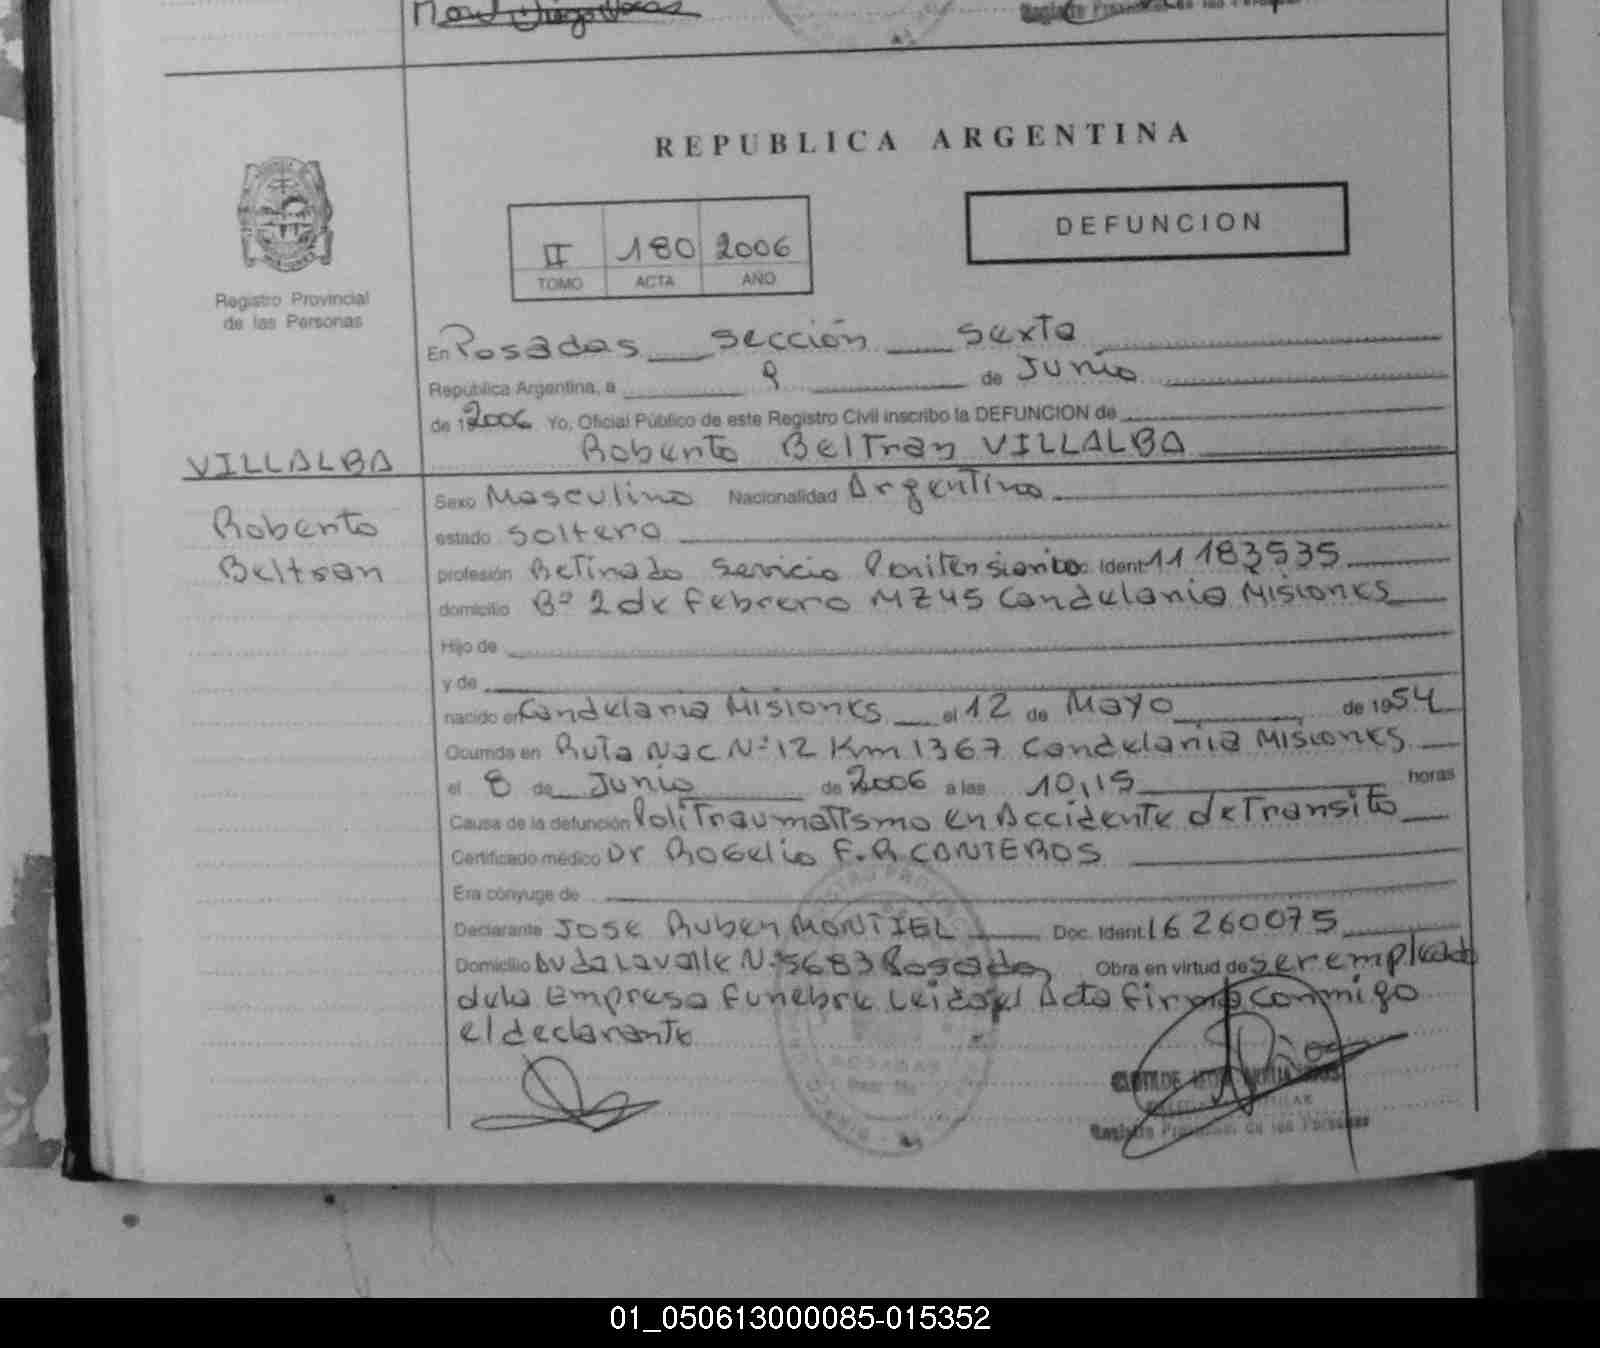 REPUBLICA ARGENTINA
DEFUNCION
II 180 2006
TOMO ACTA AÑO
Registro Provincial
de las Personas
En Posadas sección sexta
República Argentina, a 9 de Junio
de 19 2006 Yo, Oficial Público de este Registro Civil inscribo la DEFUNCION de
Roberto Beltran VILLALBA
VILLALBA
Roberto
Beltran
Sexo Masculino Nacionalidad Argentino
estado soltero
profesión Retirado Servicio Penitensiario Doc. Ident 11 183535
domicilio Bº 2 de Febrero MZ45 Candelaria Misiones
Hijo de
y de
nacido en Candelaria Misiones el 12 de Mayo de 1954
Ocurrida en Ruta Nac Nº 12 Km 1367 Candelaria Misiones
el 8 de Junio de 2006 a las 10,15 horas
Causa de la defunción PoliTraumatismo en Accidente de Transito
Certificado médico Dr Rogelio F.R. CONTEROS
Era cónyuge de
Declarante JOSE Ruben MONTIEL Doc. Ident. 16 260075
Domicilio Avda Lavalle Nº 5683 Posadas Obra en virtud de ser empleado
de la Empresa Funebre Leida el Acta firma conmigo
el declarante
CLOTILDE
Registro Provincial de las Personas
01_050613000085-015352